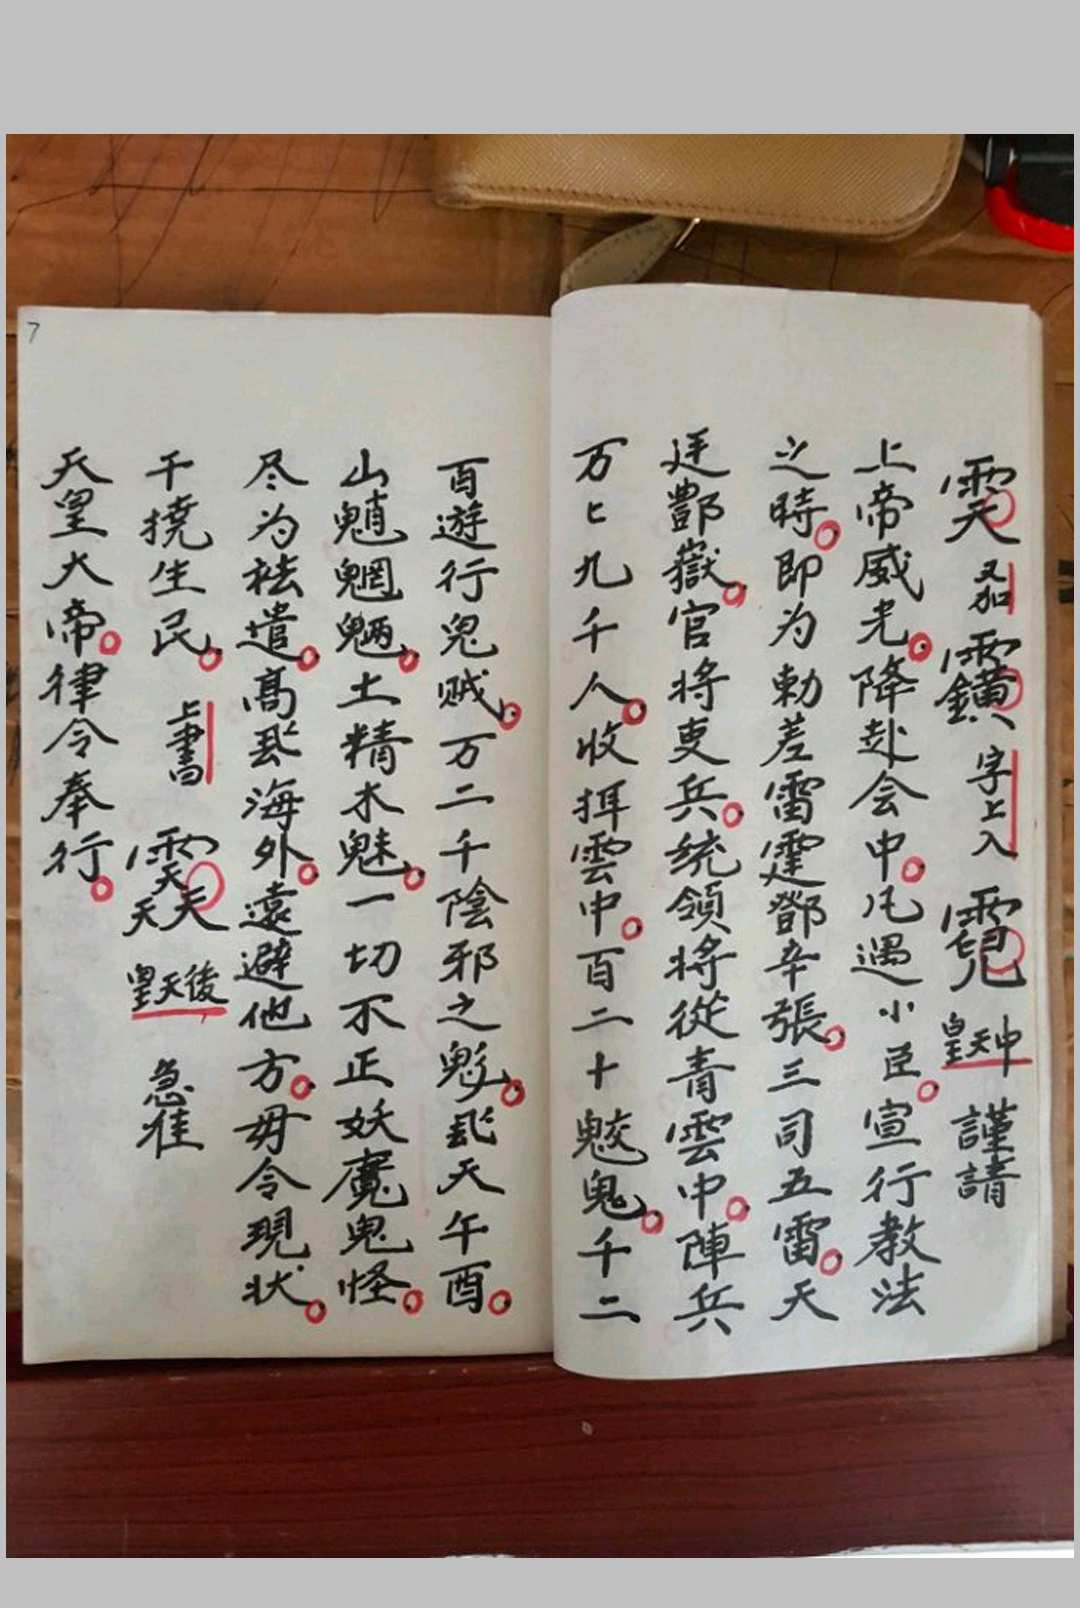 又加 字上入 皇天中 謹請
上帝威光降赴会中凡遇小臣宣行教法
之時即为勅差雷霆鄧辛張三司五雷天
廷酆嶽官将吏兵統領将從青雲中陣兵
万七九千人收捉雲中百二十魃鬼千二
百遊行鬼贼万二千陰邪之鬽飛天午酉
山魈魍魎土精木魅一切不正妖魔鬼怪
尽为祛遣高飛海外遠避他方毋令現状
干撓生民 上書 皇天後 急准
天皇大帝律令奉行
7